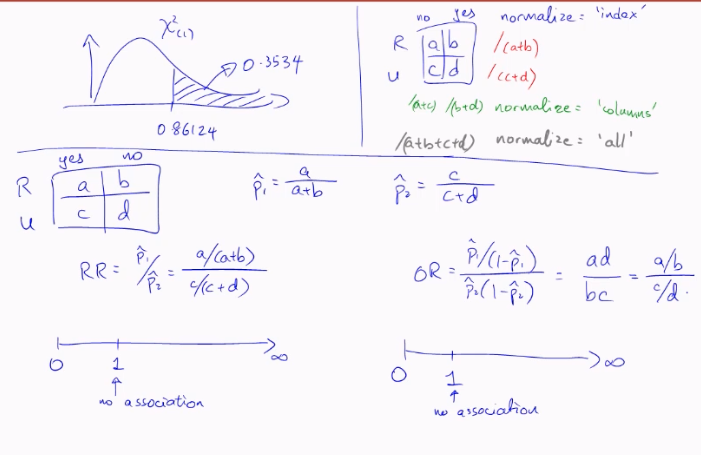 χ²(1)
0.3534
0.86124
no yes normalize = 'index'
R a b /(a+b)
U c d /(c+d)
/(a+c) /(b+d) normalize = 'columns'
/(a+b+c+d) normalize = 'all'
yes no
R a b
U c d
p̂₁ = a/(a+b)
p̂₂ = c/(c+d)
RR = p̂₁/p̂₂ = a/(a+b) / c/(c+d)
OR = p̂₁/(1-p̂₁) / p̂₂(1-p̂₂) = ad/bc = a/b / c/d.
0 1 ∞
no association
0 1 ∞
no association